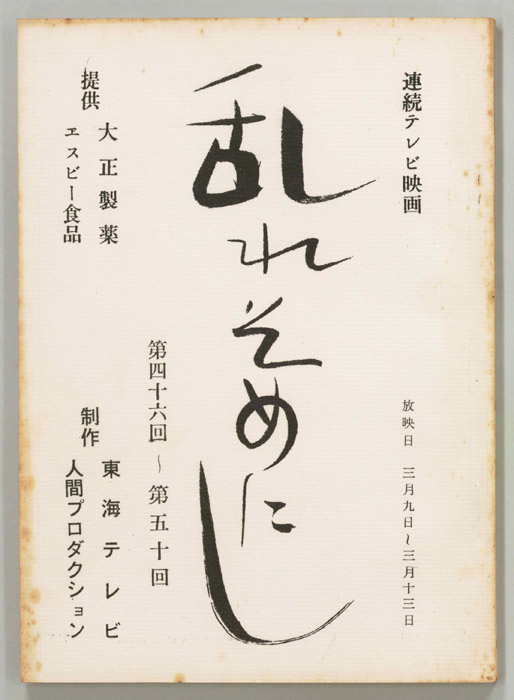 連続テレビ映画
放映日 三月九日~三月十三日
乱れそめにし
第四十六回~第五十回
提供 大正製薬
エスビー食品
制作 東海テレビ
人間プロダクション